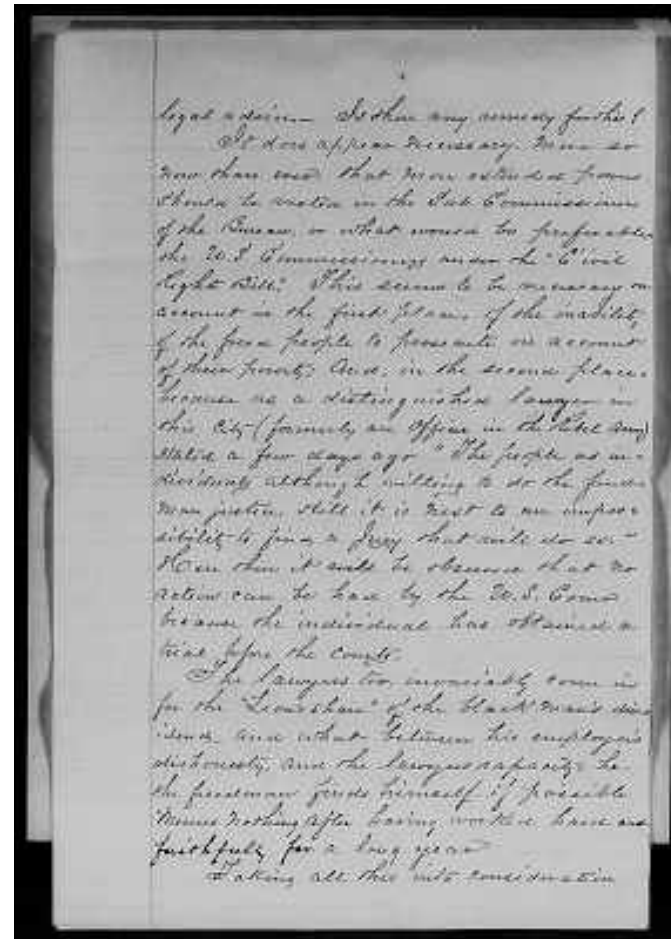 legal advice. Is there any remedy for this?
It does appear necessary more so
now than ever that more extended powers
should be vested in the Sub Commissioners
of the Bureau, or what would be preferable
the U.S. Commissioners under the "Civil
Right Bill." This seems to be necessary on
account in the first place, of the inability
of the freed people to prosecute on account
of their poverty; And, in the second place,
because as a distinguished lawyer in
this City (formerly an Officer in the Rebel Army)
stated a few days ago "The people as in-
dividuals although willing to do the freed-
man justice, still it is next to an impos-
sibility to find a Jury that will do so."
Here then it will be observed that no
action can be had by the U.S. Coms
because the individual has obtained a
trial before the courts.
The lawyers too, invariably come in
for the "Lions share" of the black man's div-
idend, and what between his employer's
dishonesty, and the lawyers rapacity he
the freedman finds himself if possible
minus nothing after having worked hard and
faithfully for a long year
Taking all this into consideration